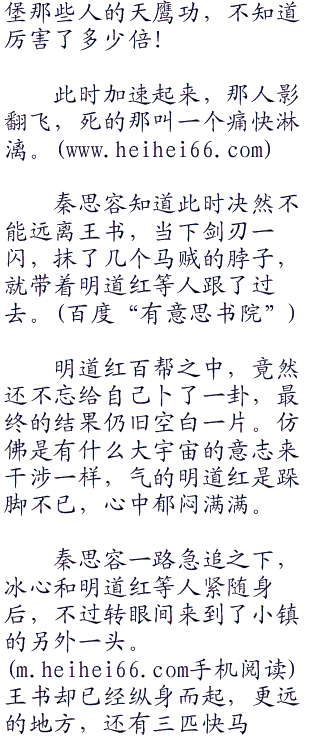 堡那些人的天鹰功，不知道
厉害了多少倍！
此时加速起来，那人影
翻飞，死的那叫一个痛快淋
漓。(www.heihei66.com)
秦思容知道此时决然不
能远离王书，当下剑刃一
闪，抹了几个马贼的脖子，
就带着明道红等人跟了过
去。(百度“有意思书院”)
明道红百帮之中，竟然
还不忘给自己卜了一卦，最
终的结果仍旧空白一片。仿
佛是有什么大宇宙的意志来
干涉一样，气的明道红是跺
脚不已，心中郁闷满满。
秦思容一路急追之下，
冰心和明道红等人紧随身
后，不过转眼间来到了小镇
的另外一头。
(m.heihei66.com手机阅读)
王书却已经纵身而起，更远
的地方，还有三匹快马